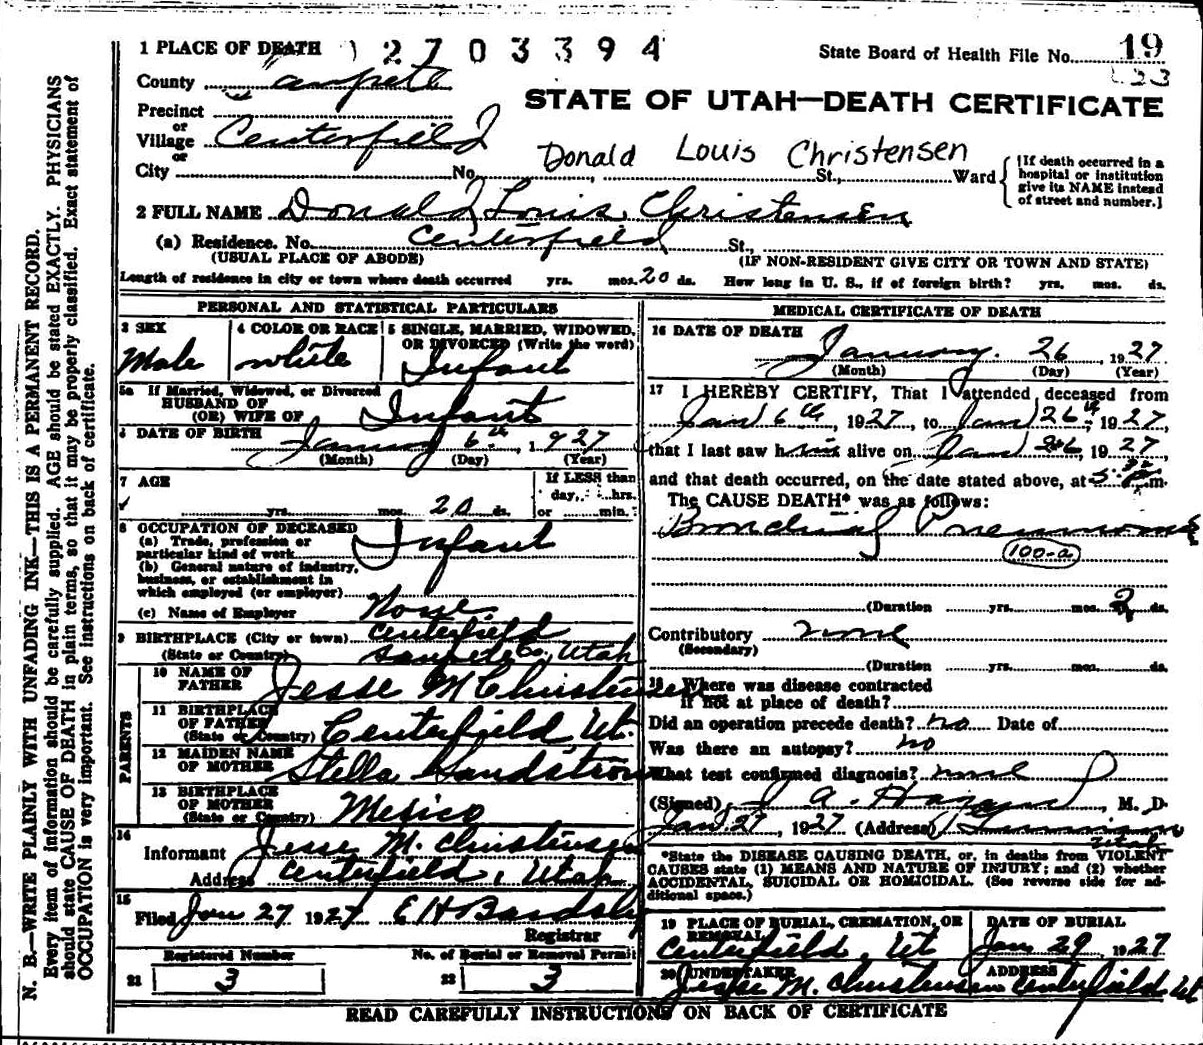 1 PLACE OF DEATH 2703394 State Board of Health File No. 19
County Sanpete
STATE OF UTAH—DEATH CERTIFICATE
Precinct
or
Village Centerfield
or
City No. St., Ward
Donald Louis Christensen
[If death occurred in a
hospital or institution
give its NAME instead
of street and number.]
2 FULL NAME Donald Louis Christensen
(a) Residence. No. Centerfield St.,
(USUAL PLACE OF ABODE) (IF NON-RESIDENT GIVE CITY OR TOWN AND STATE)
Length of residence in city or town where death occurred yrs. mos. 20 ds. How long in U. S., if of foreign birth? yrs. mos. ds.
PERSONAL AND STATISTICAL PARTICULARS
3 SEX Male
4 COLOR OR RACE white
5 SINGLE, MARRIED, WIDOWED,
OR DIVORCED (Write the word)
Infant
5a If Married, Widowed, or Divorced
HUSBAND OF
(OR) WIFE OF Infant
6 DATE OF BIRTH January 6th, 1927
(Month) (Day) (Year)
7 AGE yrs. mos. 20 ds.
If LESS than
day, hrs.
or min.
8 OCCUPATION OF DECEASED
(a) Trade, profession or
particular kind of work Infant
(b) General nature of industry,
business, or establishment in
which employed (or employer)
(c) Name of Employer None
9 BIRTHPLACE (City or town) Centerfield
(State or Country) Sanpete Co, Utah
PARENTS
10 NAME OF
FATHER Jesse M Christensen
11 BIRTHPLACE
OF FATHER
(State or Country) Centerfield Ut.
12 MAIDEN NAME
OF MOTHER Stella Sandstrom
13 BIRTHPLACE
OF MOTHER
(State or Country) Mexico
14
Informant Jesse M. Christensen
Address Centerfield, Utah
15
Filed Jan 27 1927 E H Bardsley
Registrar
Registered Number No. of Burial or Removal Permit
21 3 22 3
MEDICAL CERTIFICATE OF DEATH
16 DATE OF DEATH
January 26, 1927
(Month) (Day) (Year)
17 I HEREBY CERTIFY, That I attended deceased from
Jan 6th, 1927, to Jan 26th, 1927,
that I last saw him alive on Jan 26, 1927
and that death occurred, on the date stated above, at m.
The CAUSE DEATH* was as follows:
Bronchial Pneumonia
100-a
(Duration yrs. mos. 2 ds.
Contributory none
(Secondary)
(Duration yrs. mos. ds.
18 Where was disease contracted
if not at place of death?
Did an operation precede death? no Date of
Was there an autopsy? no
What test confirmed diagnosis? none
(Signed) J A. Hagan, M. D.
Jan. 27, 1927 (Address) Utah
*State the DISEASE CAUSING DEATH, or, in deaths from VIOLENT
CAUSES state (1) MEANS AND NATURE OF INJURY; and (2) whether
ACCIDENTAL, SUICIDAL OR HOMICIDAL. (See reverse side for ad-
ditional space.)
19 PLACE OF BURIAL, CREMATION, OR
REMOVAL
Centerfield, Ut
DATE OF BURIAL
Jan 29, 1927
20 UNDERTAKER
Jesse M. Christensen
ADDRESS
Centerfield Ut
READ CAREFULLY INSTRUCTIONS ON BACK OF CERTIFICATE
N. B.—WRITE PLAINLY WITH UNFADING INK—THIS IS A PERMANENT RECORD.
Every item of information should be carefully supplied. AGE should be stated EXACTLY. PHYSICIANS
should state CAUSE OF DEATH in plain terms, so that it may be properly classified. Exact statement of
OCCUPATION is very important. See instructions on back of certificate.